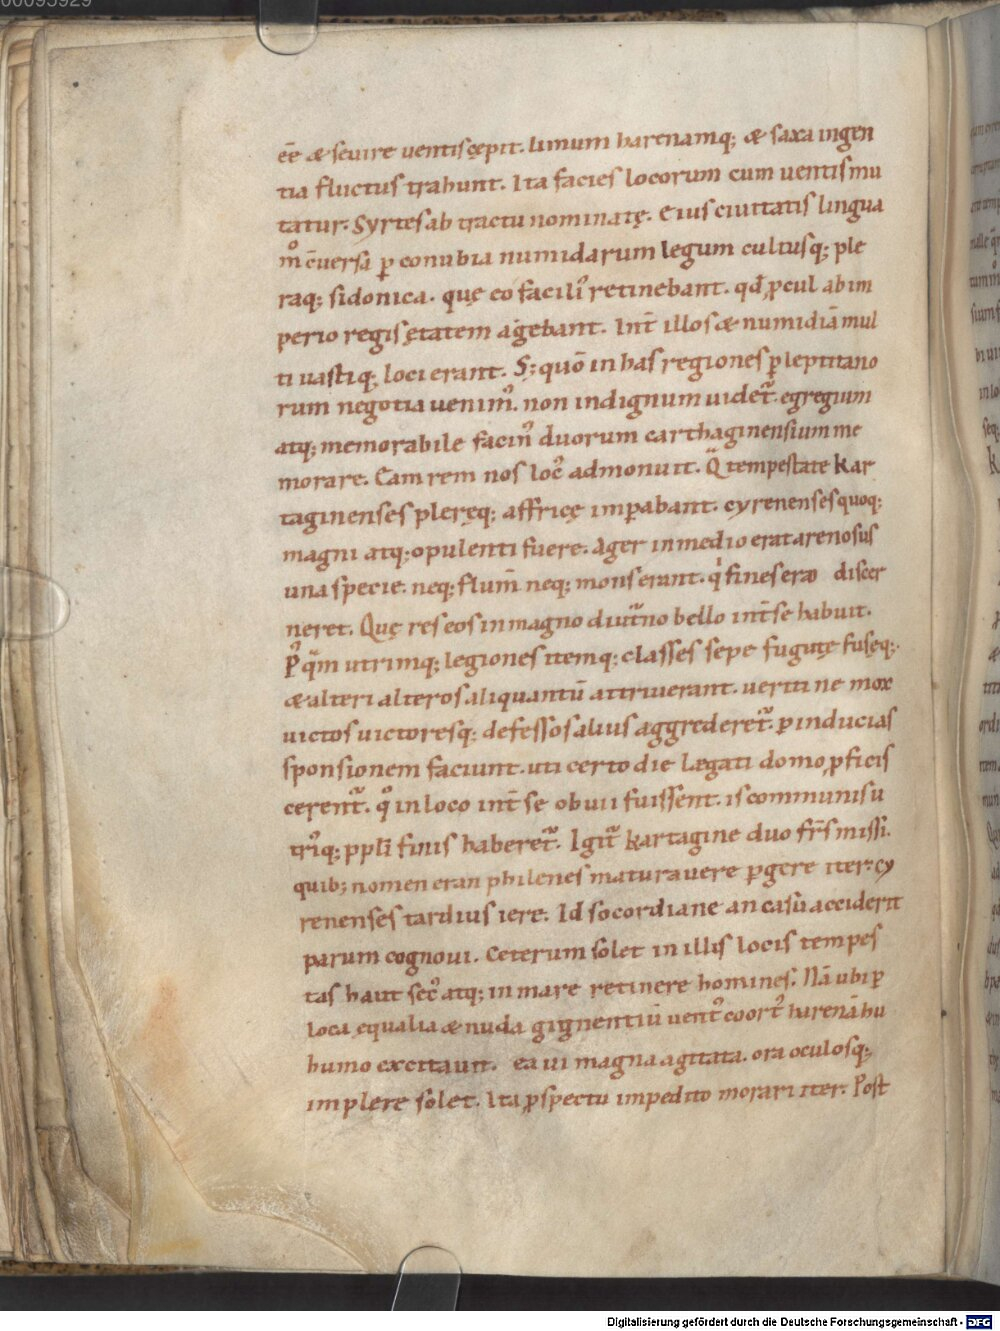 00095929
ēē & seuire uentis cępit. limum harenamq; & saxa ingen
tia fluctus trahunt. Ita facies locorum cum uentis mu
tatur. Syrtes ab tractu nominatę. Eius ciuitatis lingua
mͦ c̄uersa ꝑ conubia numidarum legum cultusq; ple
raq; sidonica. quę eo facili᾽ retinebant. qđ ꝓcul ab im
perio regis ętatem agebant. Int̄ illos & numidiā mul
ti uastiq; loci erant. S; quō in has regiones ꝑ leptitano
rum negotia uenim᾽. non indignum uidet᷑. egregium
atq; memorabile facin᾽ duorum carthaginensium me
morare. Eam rem nos loc᾽ admonuit. Q̄ tempestate kar
taginenses pleręq; affricę imꝑabant. cyrenenses quoq;
magni atq; opulenti fuere. Ager in medio erat arenosus
una specie. neq; flum̄ neq; mons erant. q̇ fines eras discer
neret. Quę res eos in magno diut᷑no bello int̄ se habuit.
P᾽ q̄m utrimq; legiones itemq; classes sepe fugatę fusęq;.
& alteri alteros aliquantū attriuerant. ueriti ne mox
uictos uictoresq; defessos alius aggrederet᷑. ꝑ inducias
sponsionem faciunt. uti certo die legati domo ꝓficis
cerent᷑. qͦ in loco int̄ se obuii fuissent. is communis u
tri᾽q; ppl̄i finis haberet᷑. Igit᷑ kartagine duo fr̄s missi.
quib; nomen eran philenes maturauere ꝑgere iter. cy
renenses tardius iere. Id socordiane an casū acciderit
parum cognoui. Ceterum solet in illis locis tempes
tas haut sec᾽ atq; in mare retinere homines. Nā ubi ꝑ
loca ęqualia & nuda gignentiū uent᾽ coort᾽ harenā hu
humo excitauit. ea ui magna agitata. ora oculosq;
implere solet. Ita ꝓspectu impedito morari iter. Post
Digitalisierung gefördert durch die Deutsche Forschungsgemeinschaft - DFG